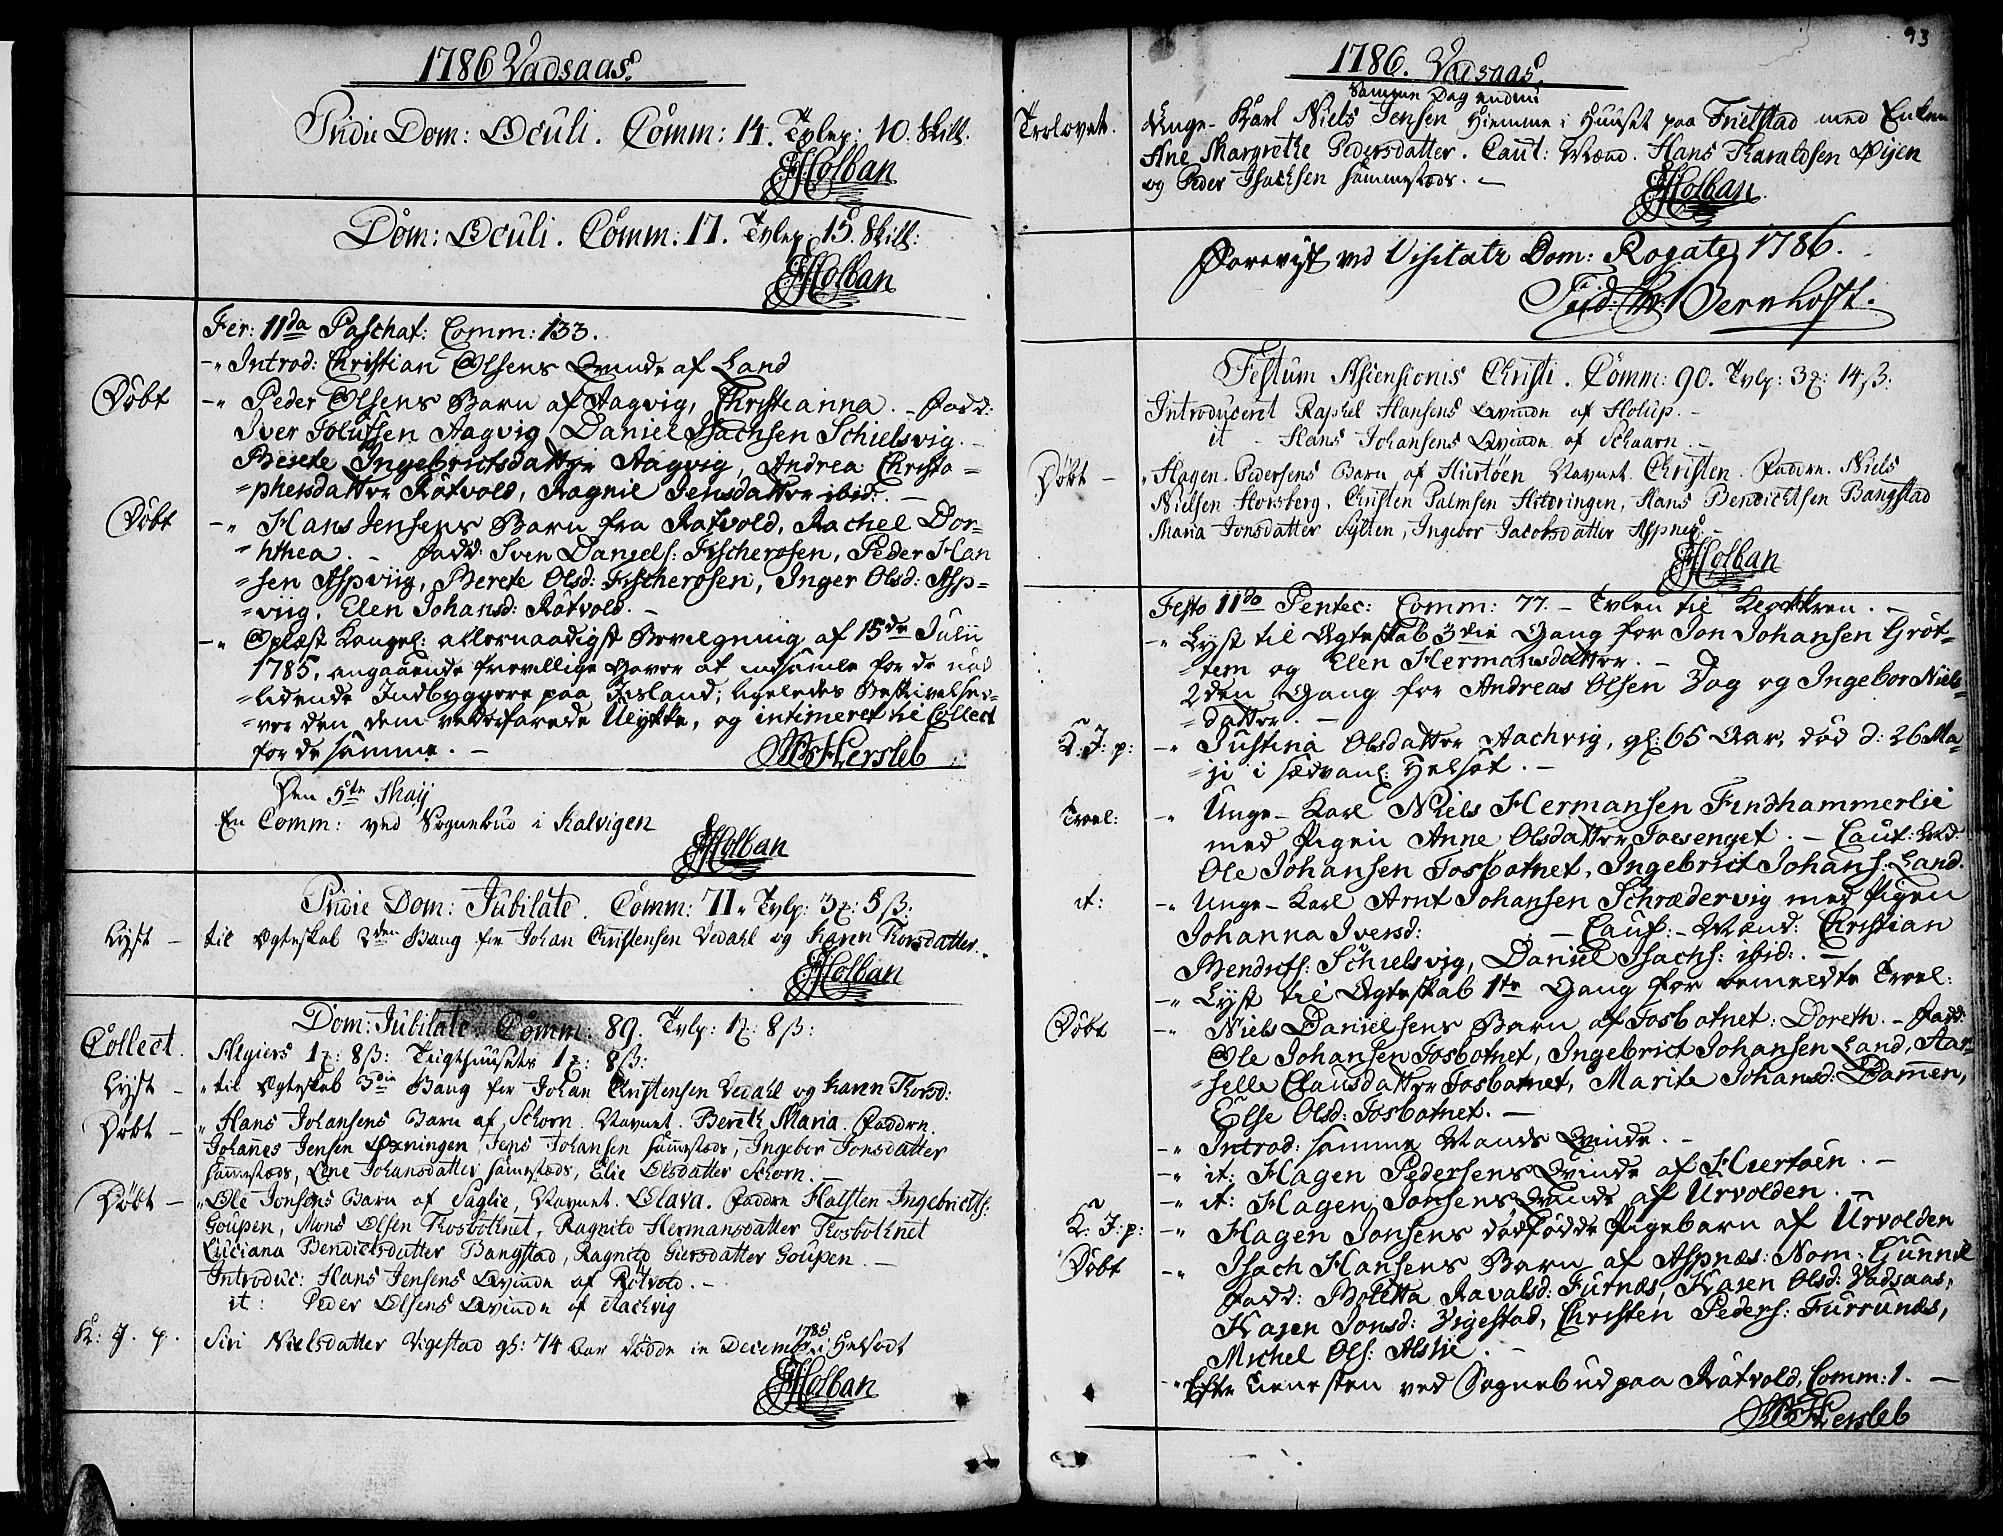 1786 Vadsaas.
Pridie Dom: Oculi. Comm: 14. Tvlep: 10. Skill.
Holban
Dom: Oculi. Comm: 17. Tvlep: 15. Skill:
Holban
Fer: IIda Paschat: Comm: 133.
-" Introd: Christian Olsens Qvinde af Land
Døbt -" Peder Olsens Barn af Aagvig, Christianna. - Fadd:
Iver Aagvig, Daniel Isachsen Schielsvig. -
Berete Ingebrictsdatter Aagvig, Andrea Christo=
=phersdatter Råtvold, Ragnil Jensdatter ibid: -
Døbt -" Hans Jensens Barn fra Ratvold, Rachel Dor=
=hthea. - Fadd: Sven Daniels: Fischerosen, Peder Han
=sen Aspviig, Berete Olsd: Fischerosen, Inger Olsd: Asp=
=viig, Elen Johansd: Råtvold. -
-" Oplæst Kongel: allernaadigst Bevilgning af 15de Julii
1785, angaaende frevillige Gaver at indsamle for de nød
=lidende Indbyggere paa Island; ligeledes Beskrivelse
=ver den dem vederfarede Ulykke, og intimeret til Collect
for de samme. -
Hersleb
Den 5te Maij
En Comm: ved Sognebud i Kalvigen
Holban
Pridie Dom: Jubilate. Comm: 71. Tvlp: 3
Lyst - til Ægteskab 2den Gang for Johan Christensen Vedahl og Karen Thorsdatter.
Holban
Dom: Jubilate. Comm: 89. Tvlp: 1 8 ß:
Collect. Algiers 1 8 ß: Tugthuusets 1 8 ß:
Lyst - " til Ægteskab 3die Gang for Johan Christensen Vedahl og Karen Thorsd:
Døbt - " Hans Johansens Barn af Schorn. Navnet. Bereth Maria. Faddre.
Johanes Jensen Oxningen, Jens Johansen sammesteds, Ingebor Jonsdatter
sammesteds, Lene Johansdatter sammesteds, Elie Olsdatter Schorn. -
Døbt - " Ole Jonsens Barn af Saglie, Navnet. Olava. Faddre Halsten Ingebrictss:
Goupen, Mons Olsen Thosbothnet, Ragnild Hermansdatter Thosbothnet
Luciana Bendictsdatter Bangstad, Ragnild Giersdatter Goupen. -
Introduc: Hans Jensens Qvinde af Rötvold. -
it: Peder Olsens Qvinde af Aachvig
K: J. p. Siri Nielsdatter Vigestad gl: 74 Aar døde in Decembr: 1785 Helsodt
Holban
93
1786. Vadsaas.
Samme Dag endnu
Trolovet. Unge- Karl Niels Jensen Hiemme i Huuset paa Frielstad med Enken
Ane Margrethe Pedersdatter. Caut: Mænd. Hans Haraldsen Øijen
og Peder Isachsen sammesteds. -
Holban
Forevist ved Visitatz Dom: Rogate 1786.
Bernhoft.
Festum Ascensionis Christi. Comm: 90. Tvlp: 3 14 ß:
Introduceret Raphel Hansens Qvinde af Holup. -
it - Hans Johansens Qvinde af Schaarn. -
Døbt - " Hagen Pedersens Barn af Hiertöen Navnet. Christen. Faddre. Niels
Nielsen Horsberg, Christen Palmsen Hitdringen, Hans Bendichtsen Bangstad
Maria Jonsdatter Sylten, Ingebor Jacobsdatter Aspnes. -
Holban
Festo IIdo Pentec: Comm: 77. - Tvlen til Klockkren. -
-" Lyst til Ægteskab 3die Gang for Jon Johansen Gröt=
=tem og Elen Hermansdatter. -
2den Gang for Andreas Olsen Zog og Ingebor Niels=
=datter. -
K: J: p: -" Justina Olsdatter Aachvig, gl: 65 Aar, død d: 26 Ma=
=ji i sædvanl: Helsot. -
Troel: -" Unge-Karl Niels Hermansen Findhammerlie
med Pigen Anne Olsdatter Joesenget. - Caut:
Ole Johansen Fosbotnet, Ingebrict Johans: Land.
it: -" Unge-Karl Arnt Johansen Schrædervig med Pigen
Johanna Iversd: - Caut:-Mænd: Christian
Bendicts: Schielsvig, Daniel Isachs: ibid: -
-" Lyst til Ægteskab 1te Gang for bemeldte Troel:
Døbt -" Niels Danielsens Barn af Fosbotnet: Doreth. - Fadd:
Ole Johansen Fosbotnet, Ingebrict Johansen Land, Aas=
=selle Clausdatter Fosbotnet, Marite Johansd: Damen,
Else Olsd: Fosbotnet. -
-" Introd: samme Mands Qvinde. -
-" it: Hagen Pedersens Qvinde af Hiertöen. -
-" it: Hagen Jonsens Qvinde af Urvolden. -
K: J: p: -" Hagen Jonsens dødfødde Pigebarn af Urvolden
Døbt -" Isach Hansens Barn af Aspnæs: Nom: Gunnil
Fadd: Boletta Ravalsd: Furnæs, Karen Olsd: Vadsaas,
Karen Jonsd: Vigestad, Christen Peders: Furrunæs,
Michel Ols: Aslie. -
-" Efter Tienesten ved Sognebud paa Råtvold, Comm: 1. -
Hersleb